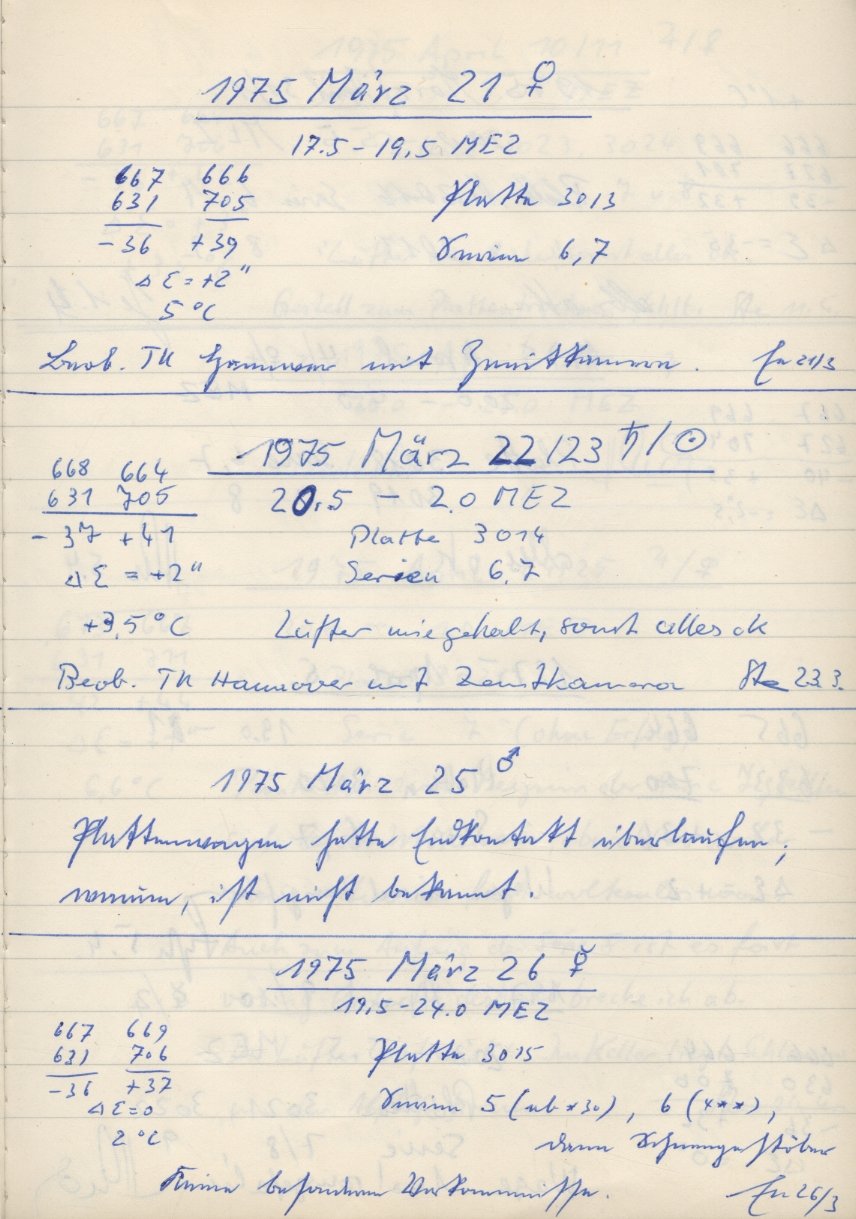 1975 März 21 ♀
17.5 – 19.5 MEZ
667 666
631 705 Platte 3013
-36 +39
Serien 6,7
Δ Ɛ = +2"
5 °C
Beob. TU Hannover mit Zenitkamera. En 21/3
1975 März 22/23 ♄/☉
668 664
631 705 20.5 – 2.0 MEZ
- 37 +41 Platte 3014
Δ Ɛ = +2" Serien 6,7
+3,5 °C Lüfter wie gehabt, sonst alles ok
Beob. TU Hannover mit Zenitkamera Ste 23.3.
1975 März 25 ♂
Plattenwagen hatte Endkontakt überlaufen;
warum, ist nicht bekannt.
1975 März 26 ☿
19.5 – 24.0 MEZ
667 669
631 706 Platte 3015
-36 +37
Δ Ɛ = 0 Serien 5 (ab *30), 6 (4**),
2 °C dann Schneegestöber
Keine besonderen Vorkommnisse. En 26/3